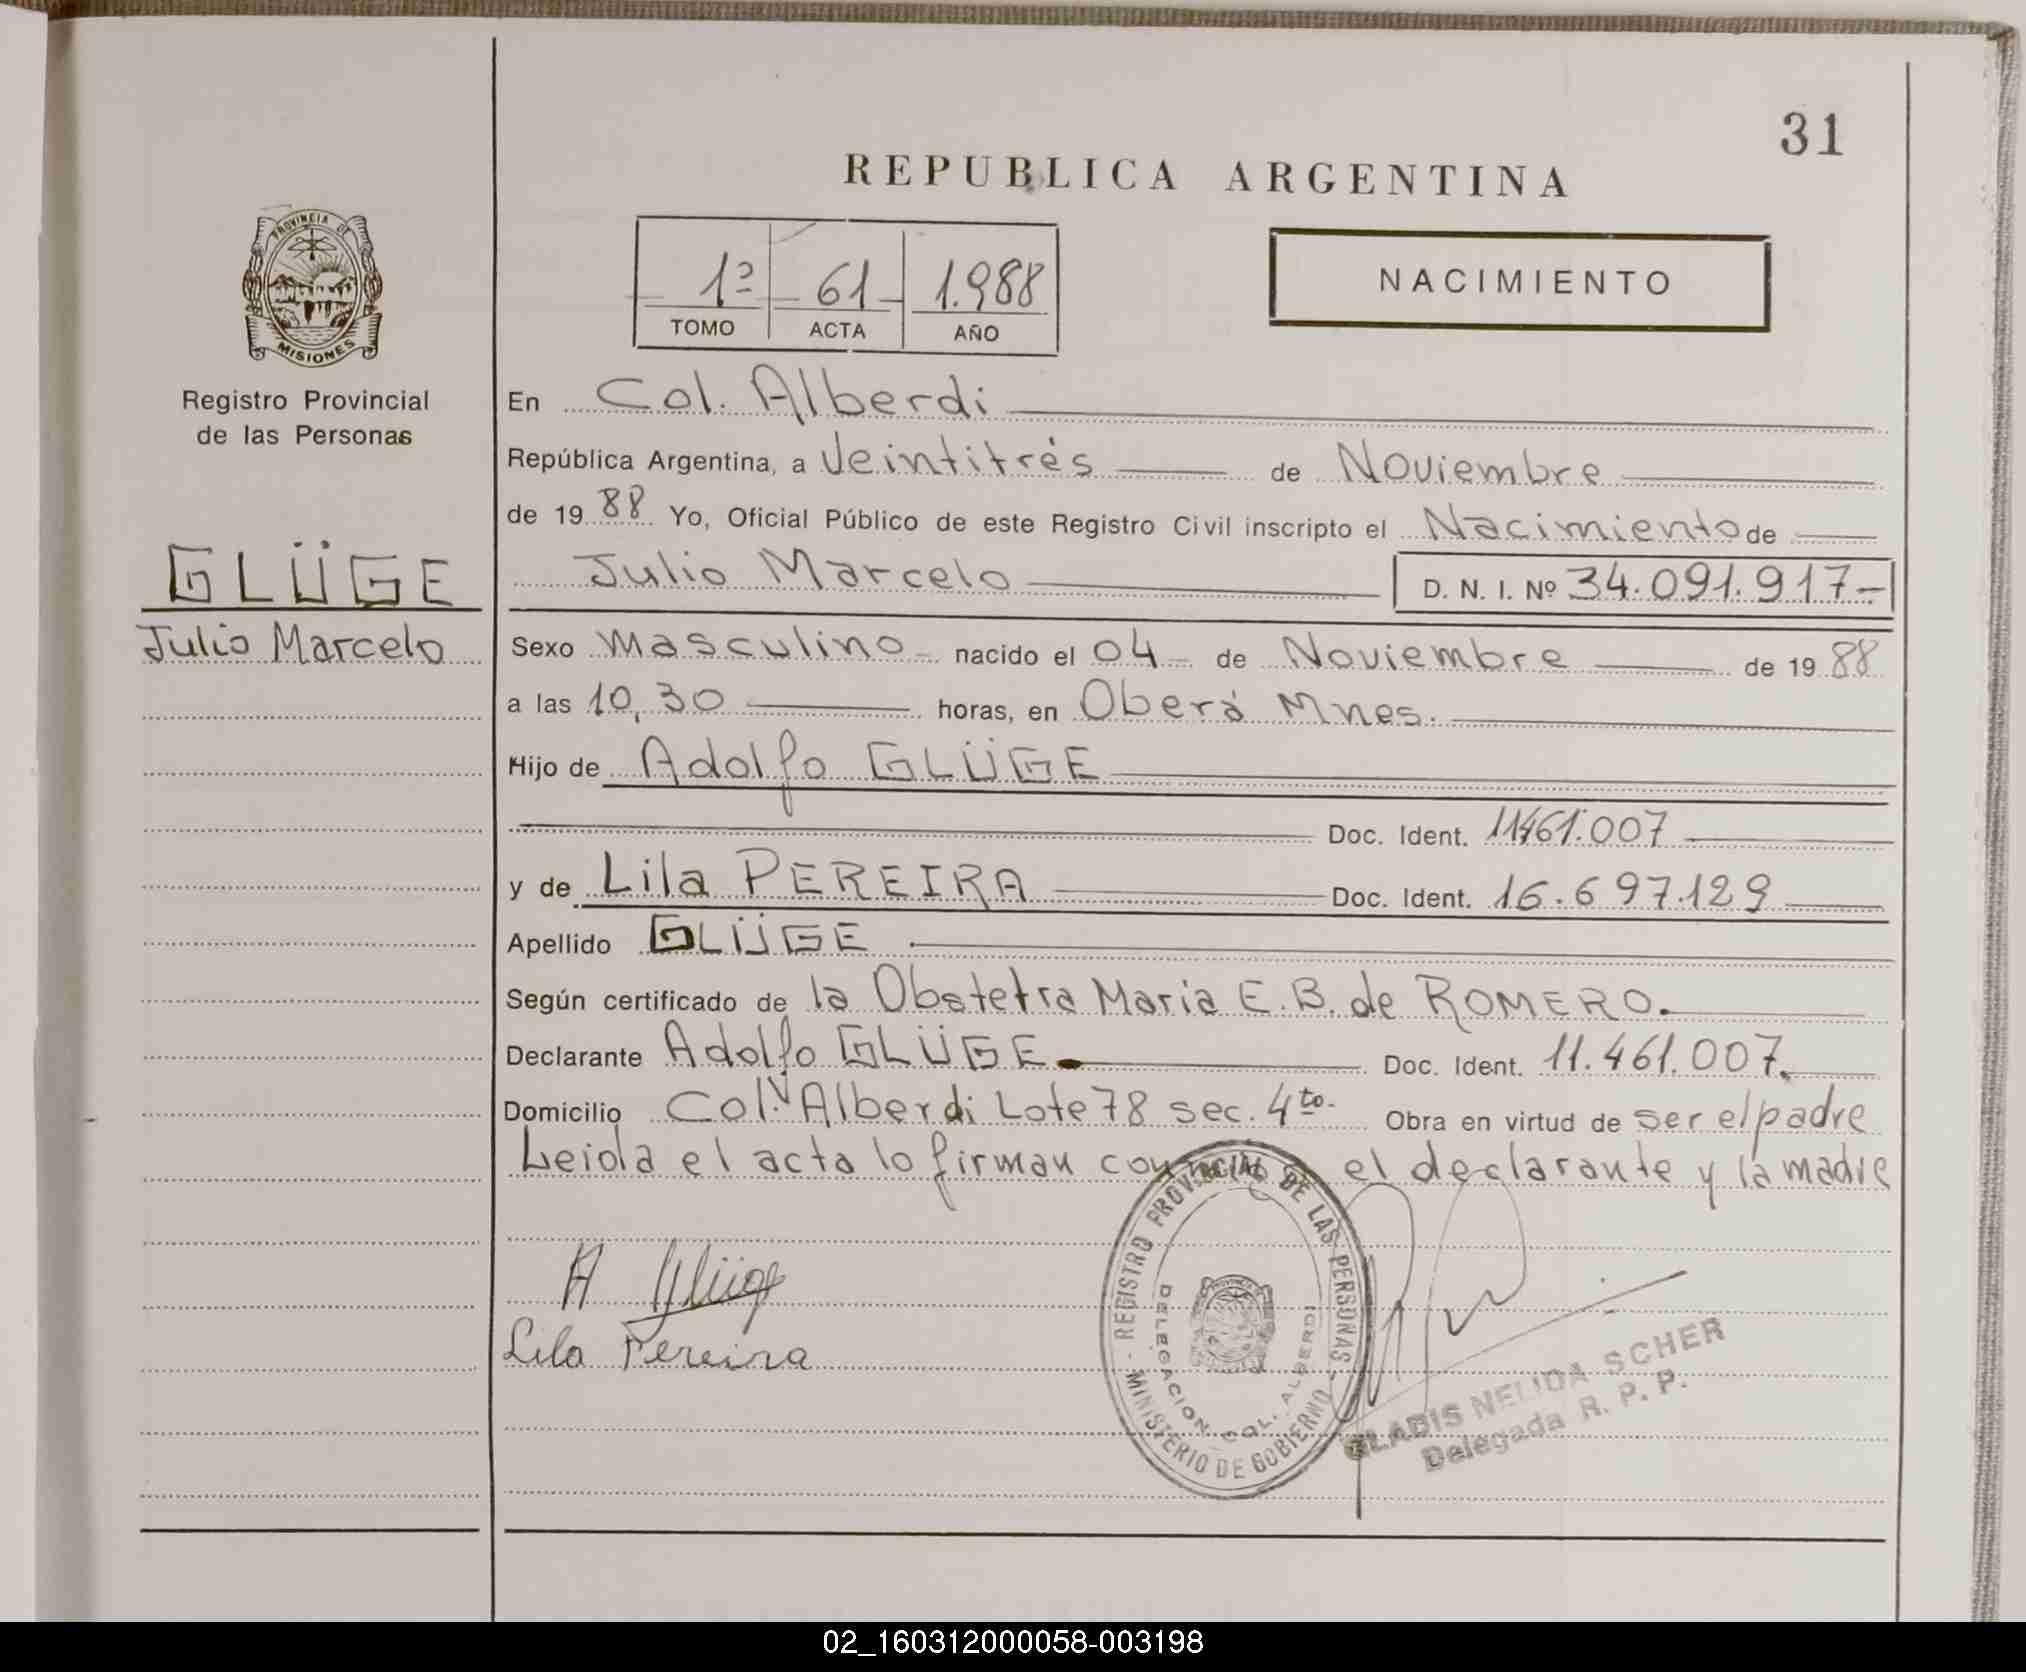 31
REPUBLICA ARGENTINA
PROVINCIA DE
MISIONES
1º 61 1.988
TOMO ACTA AÑO
NACIMIENTO
Registro Provincial
de las Personas
GLÜGE
Julio Marcelo
En Col. Alberdi
República Argentina, a Veintitrés de Noviembre
de 19 88 Yo, Oficial Público de este Registro Civil inscripto el Nacimiento de
Julio Marcelo D. N. I. Nº 34.091.917-
Sexo Masculino nacido el 04 de Noviembre de 19 88
a las 10,30 horas, en Oberá Mnes.
Hijo de Adolfo GLÜGE
Doc. Ident. 11461.007
y de Lila PEREIRA Doc. Ident. 16.697.129
Apellido GLÜGE
Según certificado de la Obstetra Maria E. B. de ROMERO.
Declarante Adolfo GLÜGE. Doc. Ident. 11.461.007.
Domicilio Col. Alberdi Lote 78 sec. 4to. Obra en virtud de ser el padre
Leida el acta lo firman conmigo el declarante y la madre
A Glüge
Lila Pereira
REGISTRO PROVINCIAL DE LAS PERSONAS
MINISTERIO DE GOBIERNO
DELEGACION COL. ALBERDI
GLADIS NELIDA SCHER
Delegada R. P. P.
02_160312000058-003198